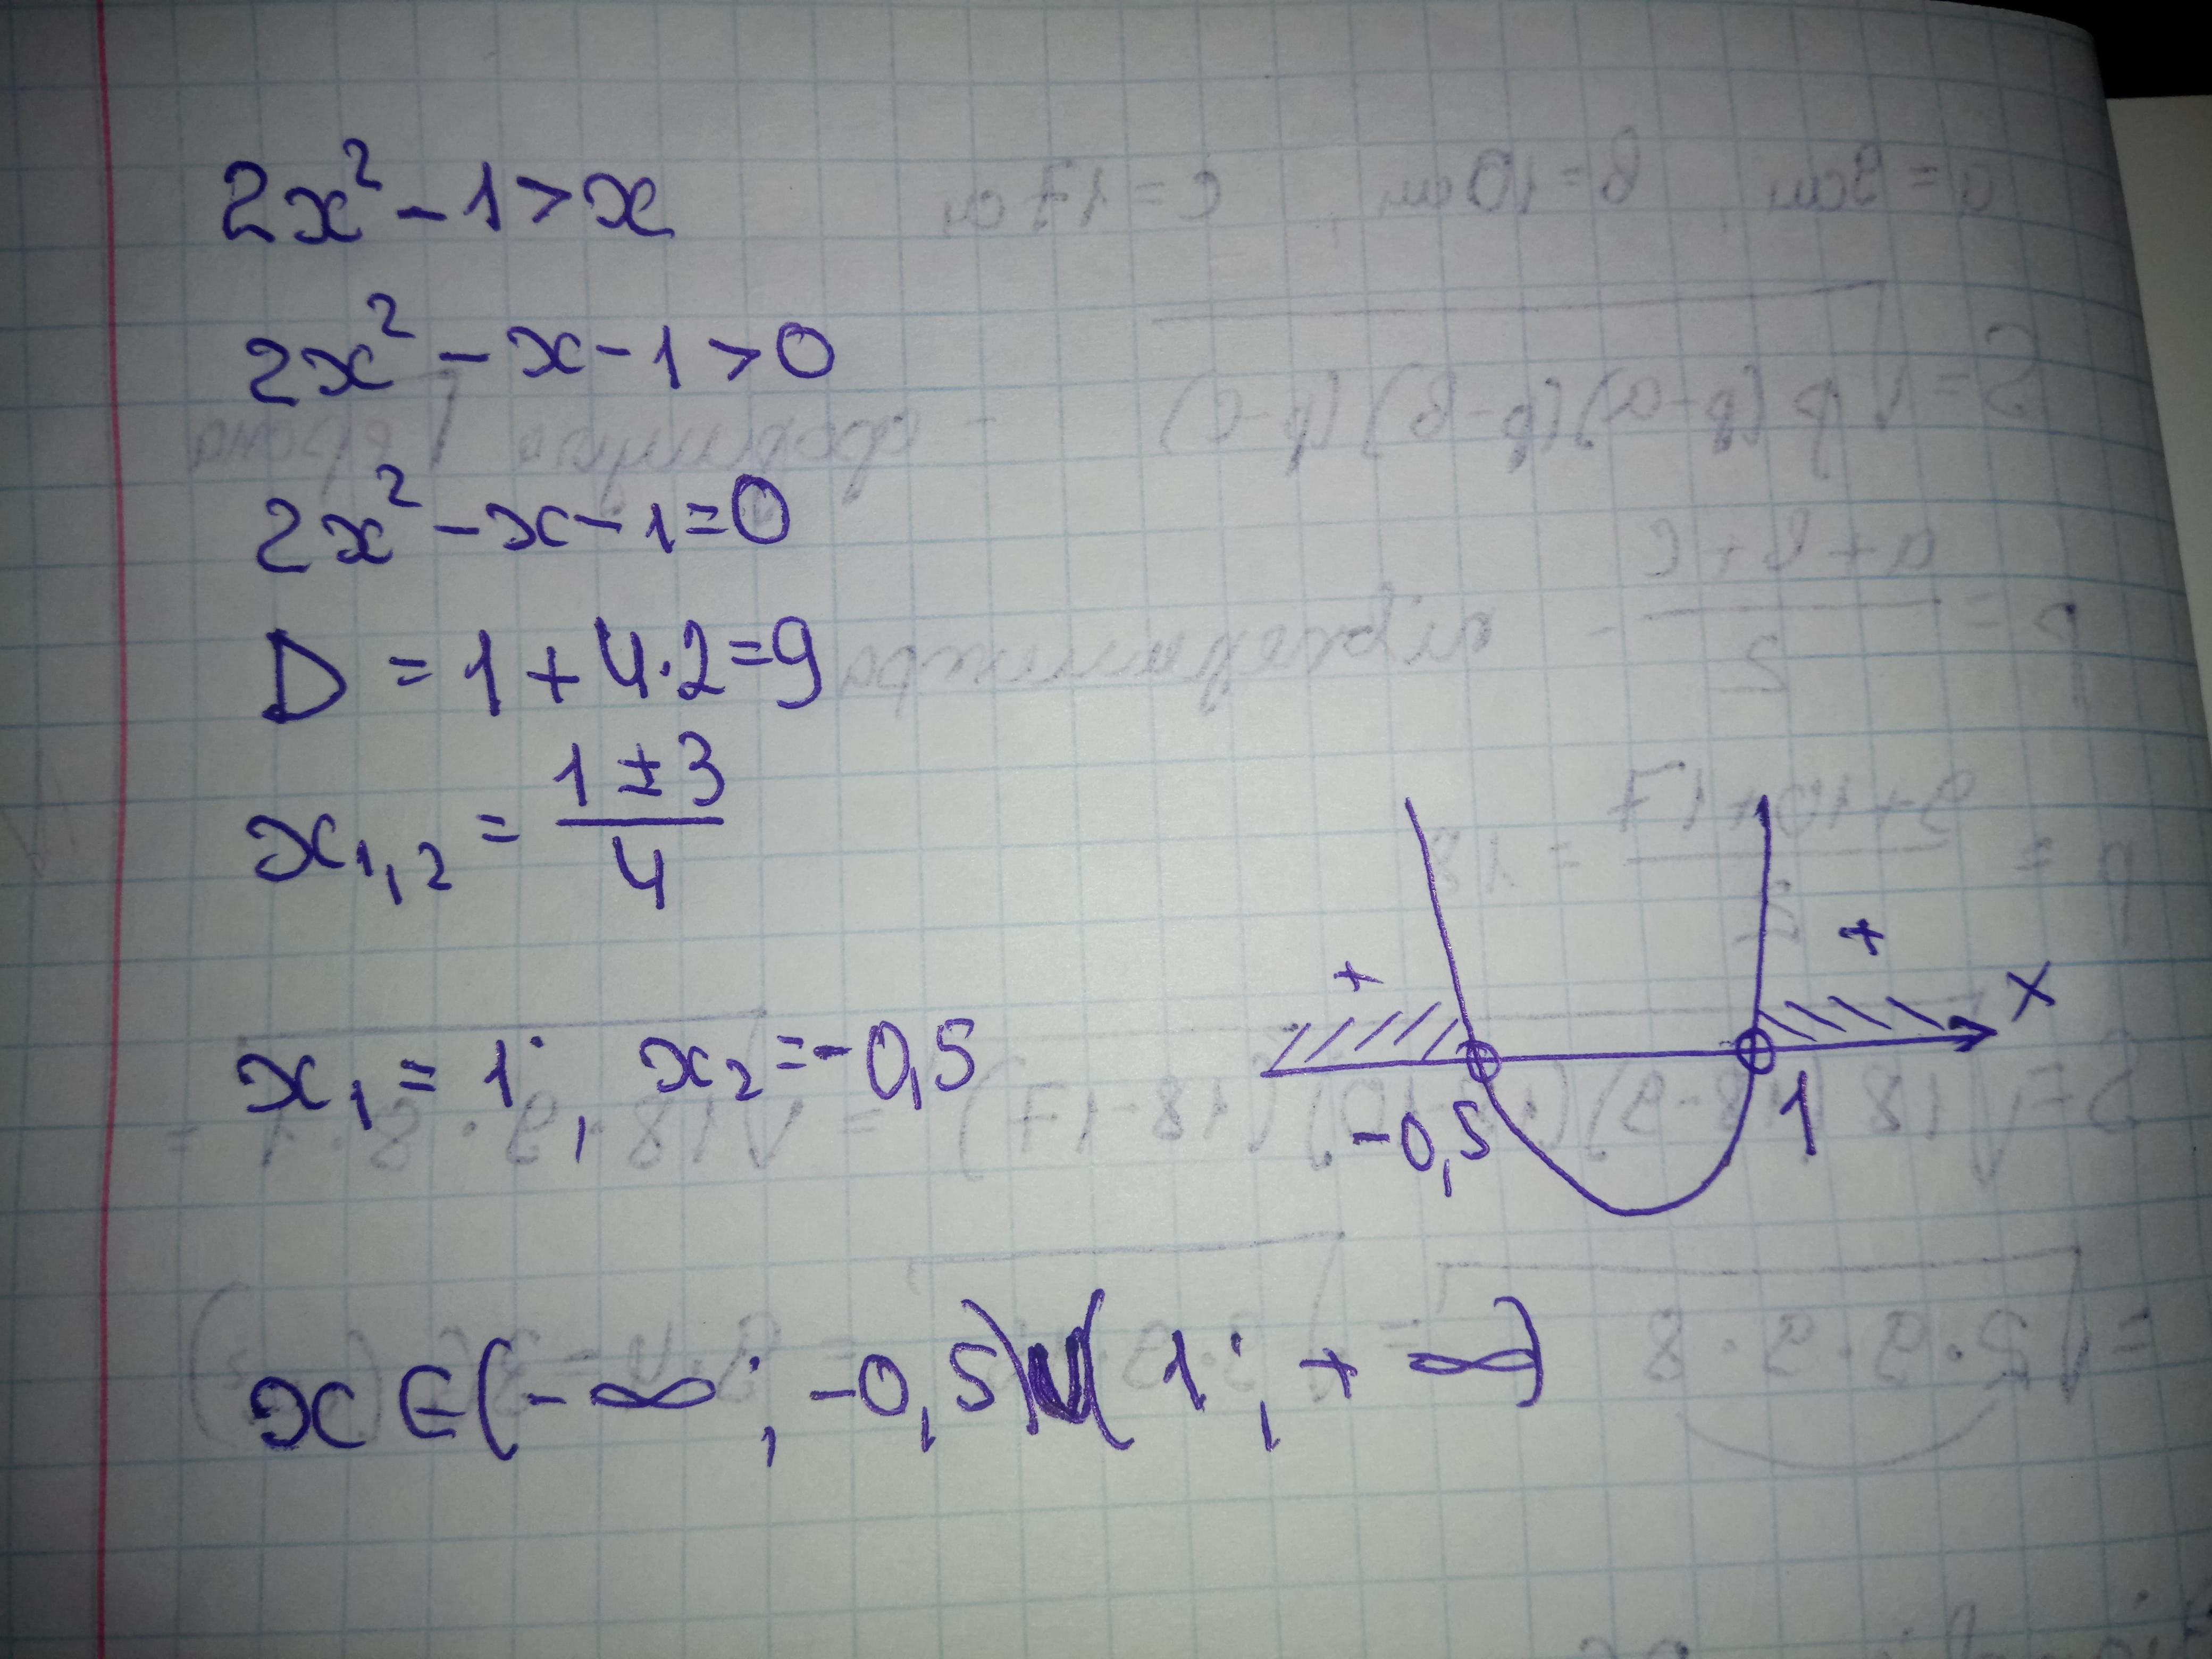 2x² - 1 > x
2x² - x - 1 > 0
2x² - x - 1 = 0
D = 1 + 4·2 = 9
x₁,₂ = (1 ± 3)/4
x₁ = 1; x₂ = -0,5
+ + x
-0,5 1
x ∈ (-∞; -0,5) ∪ (1; +∞)